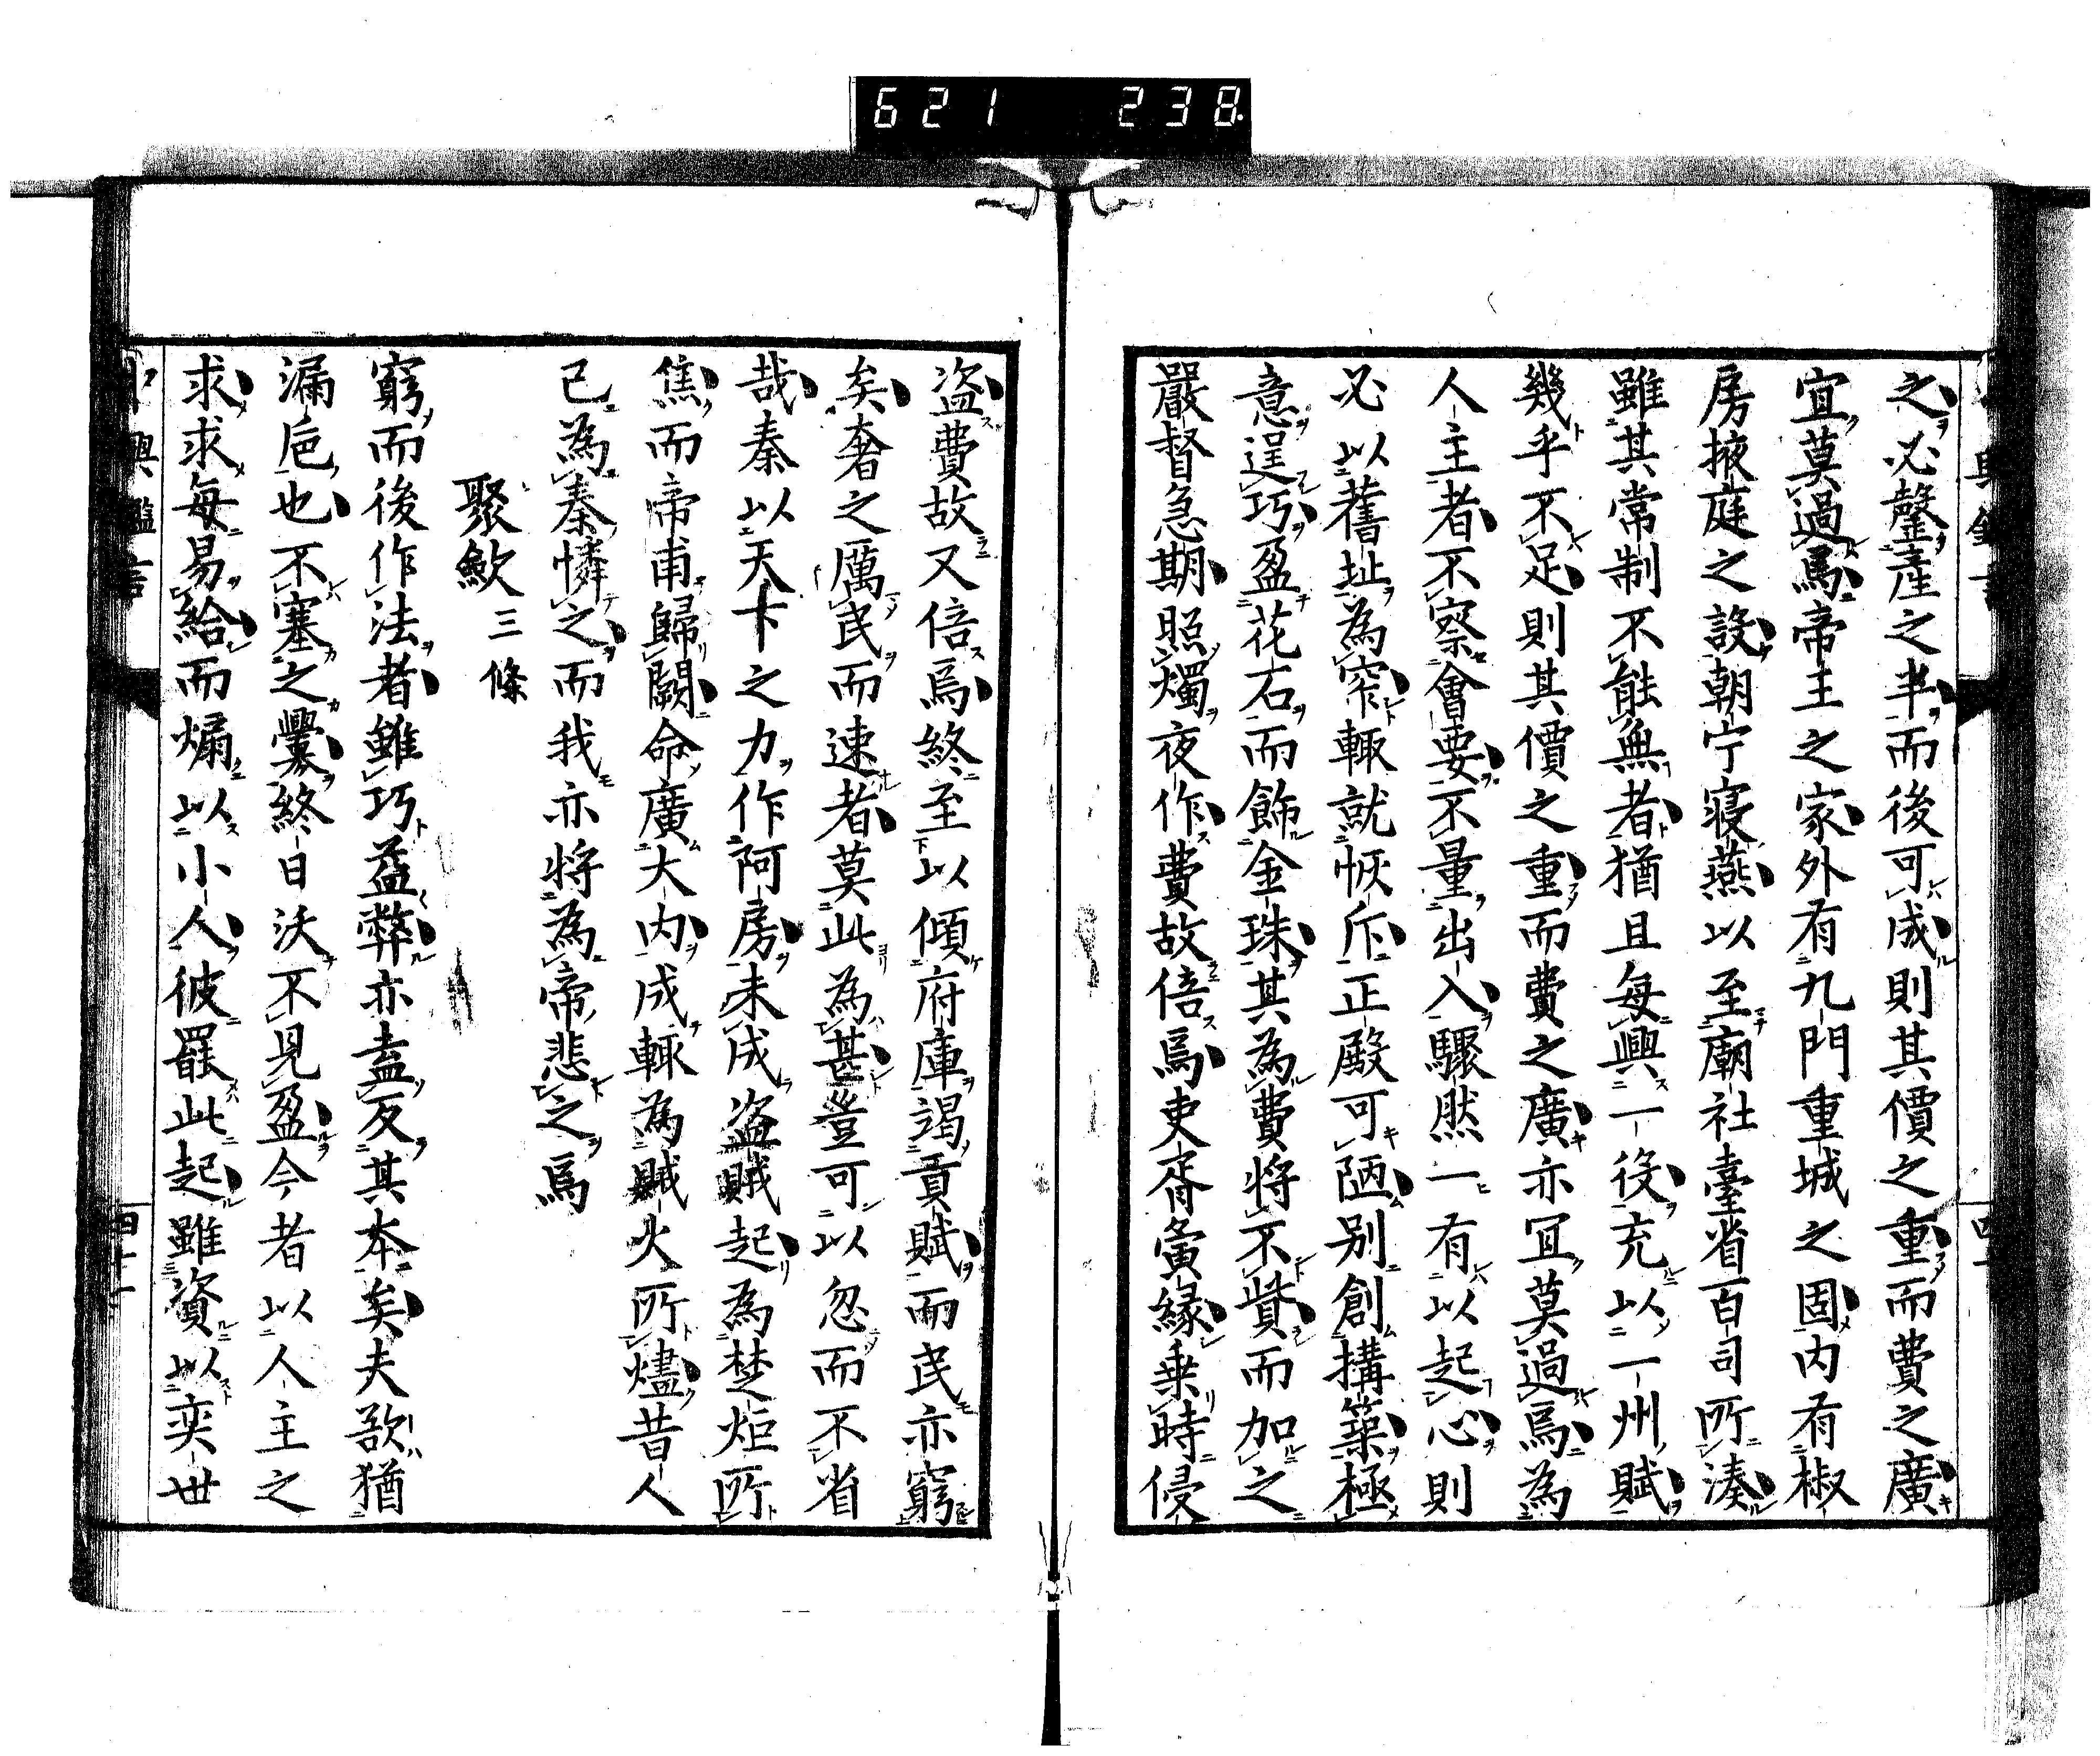 621 238
之必罄產之半而後可成則其價之重而費之廣
宜莫過焉帝王之家外有九門重城之固內有椒
房掖庭之設朝宁寢燕以至廟社臺省百司所湊
雖其常制不能無者猶且每興一役充以一州賦
幾乎不足則其價之重而費之廣亦宜莫過焉為
人主者不察會要不量出入驟然一有以起心則
必以舊址為窄輒就恢斥正殿可陋別創搆築極
意逞巧盈花石而飾金珠其為費將不貲而加之
嚴督急期照燭夜作費故倍焉吏胥夤緣乗時侵
盜費故又倍焉終至以傾府庫竭貢賦而民亦窮
矣奢之厲民而速者莫此為甚豈可以忽而不省
哉秦以天下之力作阿房未成盜賊起為楚炬所
焦而帝甫歸闕命廣大內成輒為賊火所燼昔人
已為秦憐之而我亦将為帝悲之焉
聚歛 三條
窮而後作法者雖巧益弊亦盍反其本矣夫歛猶
漏巵也不塞之釁終日沃不見盈今者以人主之
求求每易給而煽以小人彼罷此起雖資以奕世
興鑑言 四十一